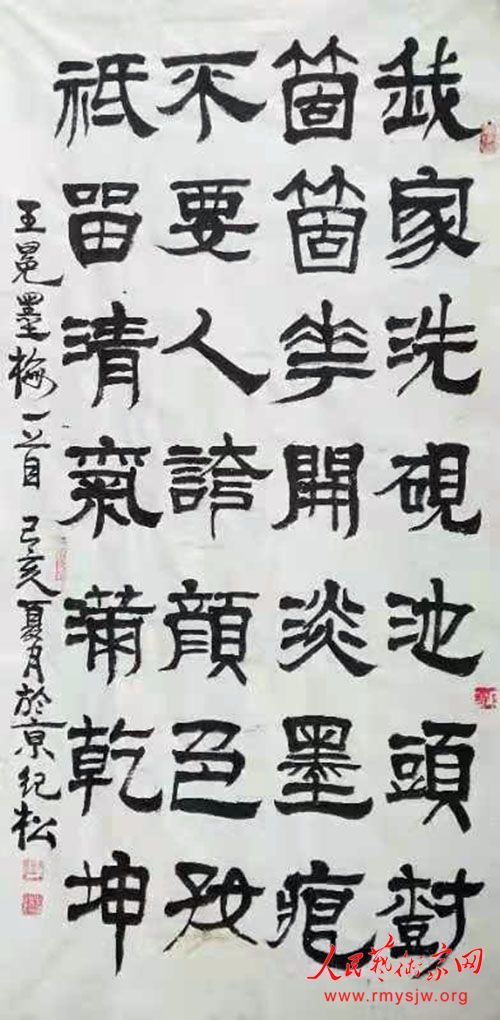 我家洗硯池頭樹
箇箇花開淡墨痕
不要人誇顏色好
祇留清氣滿乾坤
王冕墨梅一首 己亥夏月於京紀松
人民藝術家网
www.rmysjw.org